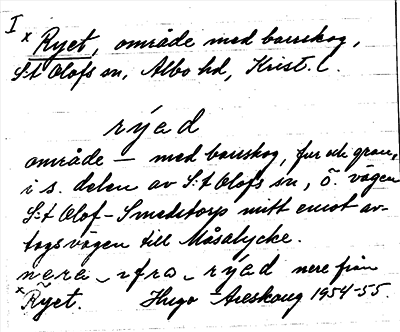 I
x Ryet, område med barrskog,
S:t Olofs sn, Albo hd, Krist. l.
rýad
område – med barrskog, fur och gran,
i s. delen av S:t Olofs sn, ö. vägen
S:t Olof – Smedstorp mitt emot av-
tagsvägen till Måsalycke.
nera ifra rýad nere från
x Ryet. Hugo Areskoug 1954-55.